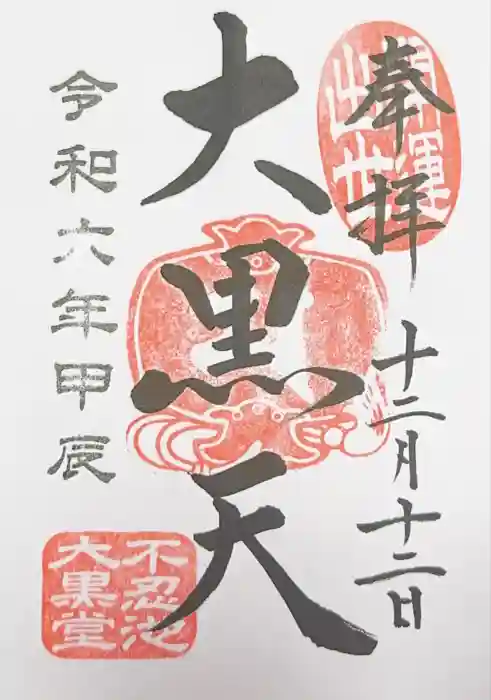 奉拝
開運
出世
十二月十二日
大黒天
令和六年甲辰
不忍池
大黒堂